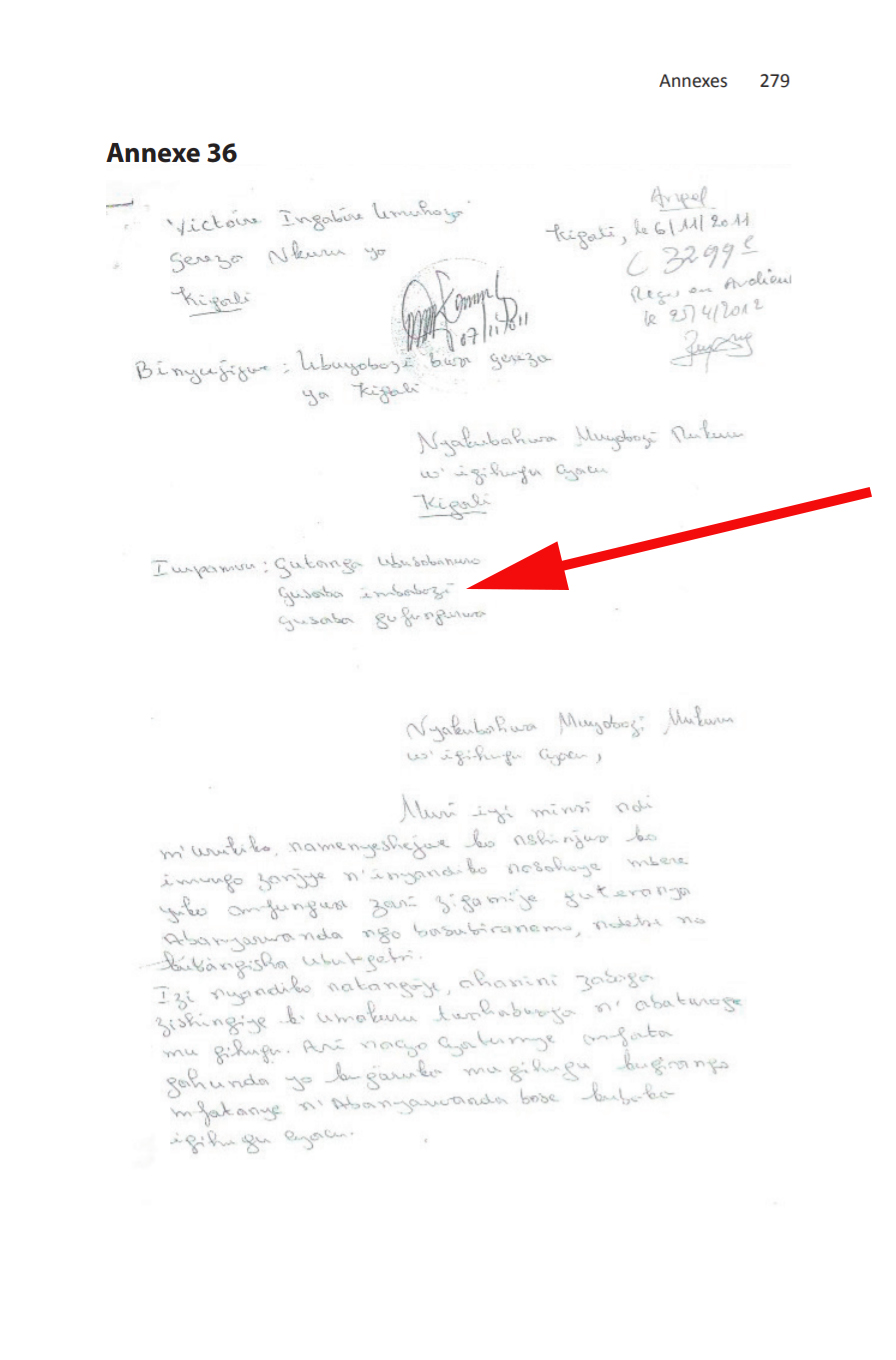 Annexes 279
Annexe 36
Victoire Ingabire Umuhoza
Gereza Nkuru ya
Kigali
Kigali, le 6/11/2011
C 3299
le 25/4/2012
07/11/2011
Binyujijwe : Ubuyobozi bwa gereza
ya Kigali
Nyakubahwa Muyobozi Mukuru
w'igihugu cyacu
Kigali
Impamvu : Gutanga ubusobanuro
Gusaba imbabazi
Gusaba gufungurwa
Nyakubahwa Muyobozi Mukuru
w'igihugu cyacu,
Muri iyi minsi ndi
m'urukiko, namenyeshejwe ko nshinjwa ko
imvugo zanjye n'inyandiko nasohoye mbere
yuko mfungwa zari zigamije guteranya
Abanyarwanda ngo basubiranemo, ndetse no
kubangisha ubutegetsi.
Izi nyandiko natangaje, ahanini zabaga
zishingiye k'umakuru twahabwaga n'abaturage
mu gihugu. Ari nacyo cyatumye mfata
gahunda yo kugaruka mu gihugu kugirango
mfatanye n'Abanyarwanda bose kubaka
igihugu cyacu.